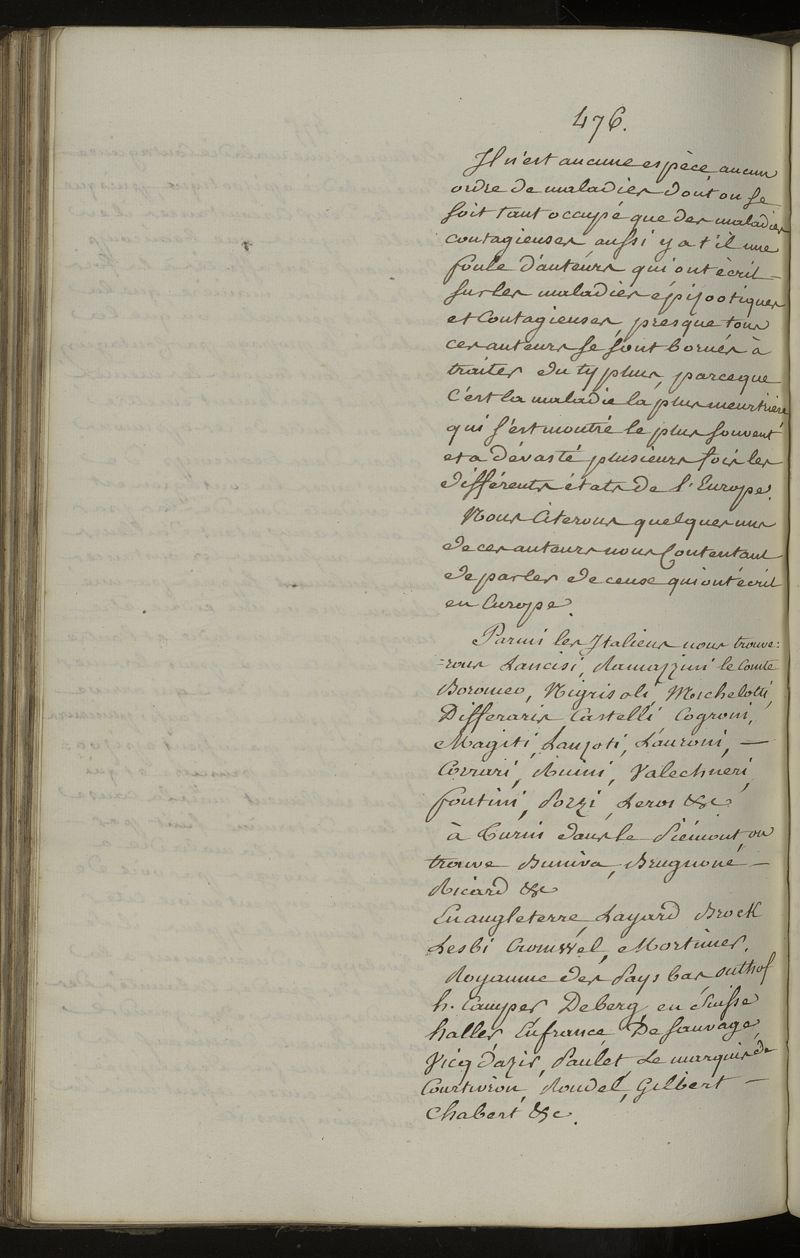 476.
Il n'est aucune espèce aucun
ordre de maladies dont on se
soit tant occupé que des maladies
contagieuses aussi y a t'il une
foule d'auteurs qui ont écrit
sur les maladies épizootiques
et Contagieuses, presque tous
ces auteurs se sont bornés à
traiter du typhus, parceque
C'est la maladie la plus meurtriere
qui s'est montré le plus souvent
et a dévasté plusieurs fois les
différents états de l'Europe.
Nous Citerons quelques uns
de ces auteurs nous Contentant
de parler de ceuse qui ont écrit
en Europe.
Parmi les Italiens nous trouve=
=rons Lancisi, Ramazzini le Comte
Boromeo, Nigrisoli, Michelotti,
Differaris Castelli Cogroni,
Magiti, Lanzoti, Lauroni, —
Corrari, Ruini, Valechneri,
fontini, Pozzi, Leros &c
à Turin dans le Piémont, on
trouve Buniva, Brugnoné —
Ricard &c
En angleterre, Layard Brock
Lesbi Cromwel, Mortimer.
Royaume des Pays bas outhof
h. Camper Deberg, en Suisse
haller En france De Sauvage,
Vicq d'azir, Paulet, Le marquis de
Courtivron, Roudel, Gilbert —
Chabert &c.